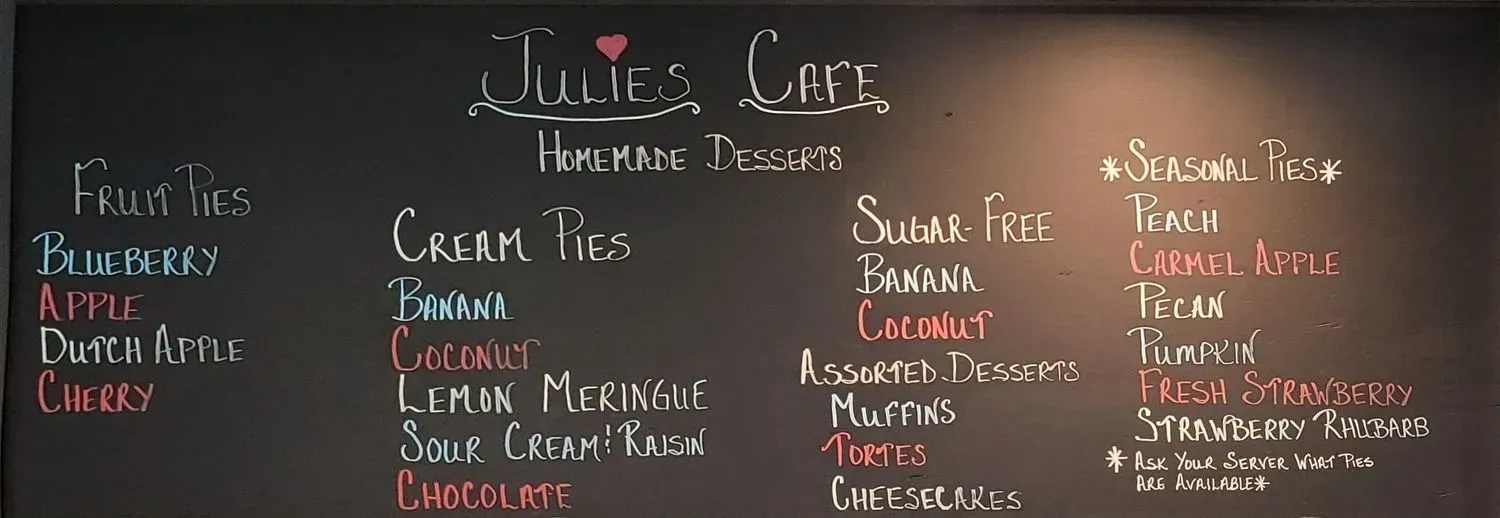 JULIES CAFE
HOMEMADE DESSERTS
FRUIT PIES
BLUEBERRY
APPLE
DUTCH APPLE
CHERRY
CREAM PIES
BANANA
COCONUT
LEMON MERINGUE
SOUR CREAM & RAISIN
CHOCOLATE
SUGAR-FREE
BANANA
COCONUT
ASSORTED DESSERTS
MUFFINS
TORTES
CHEESECAKES
*SEASONAL PIES*
PEACH
CARMEL APPLE
PECAN
PUMPKIN
FRESH STRAWBERRY
STRAWBERRY RHUBARB
* ASK YOUR SERVER WHAT PIES
ARE AVAILABLE*